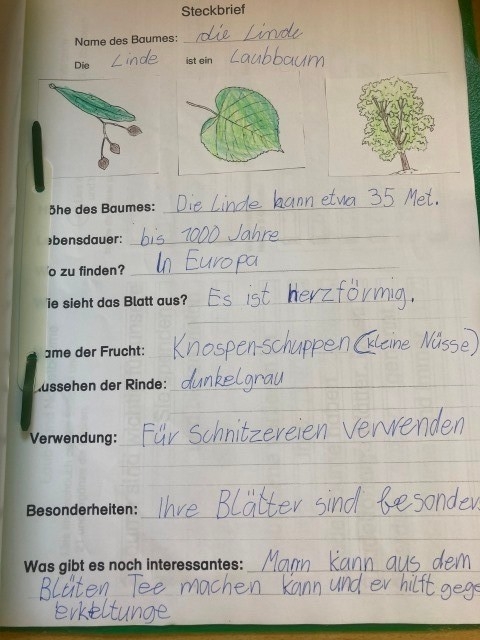 Steckbrief
Name des Baumes: die Linde
Die Linde ist ein Laubbaum
öhe des Baumes: Die Linde kann etwa 35 Met.
ebensdauer: bis 1000 Jahre
o zu finden? In Europa
ie sieht das Blatt aus? Es ist herzförmig.
ame der Frucht: Knospen-schuppen (kleine Nüsse)
ussehen der Rinde: dunkelgrau
Verwendung: Für Schnitzereien verwenden
Besonderheiten: Ihre Blätter sind besonder
Was gibt es noch interessantes: Mann kann aus dem
Blüten Tee machen kann und er hilft gege
erkeltunge